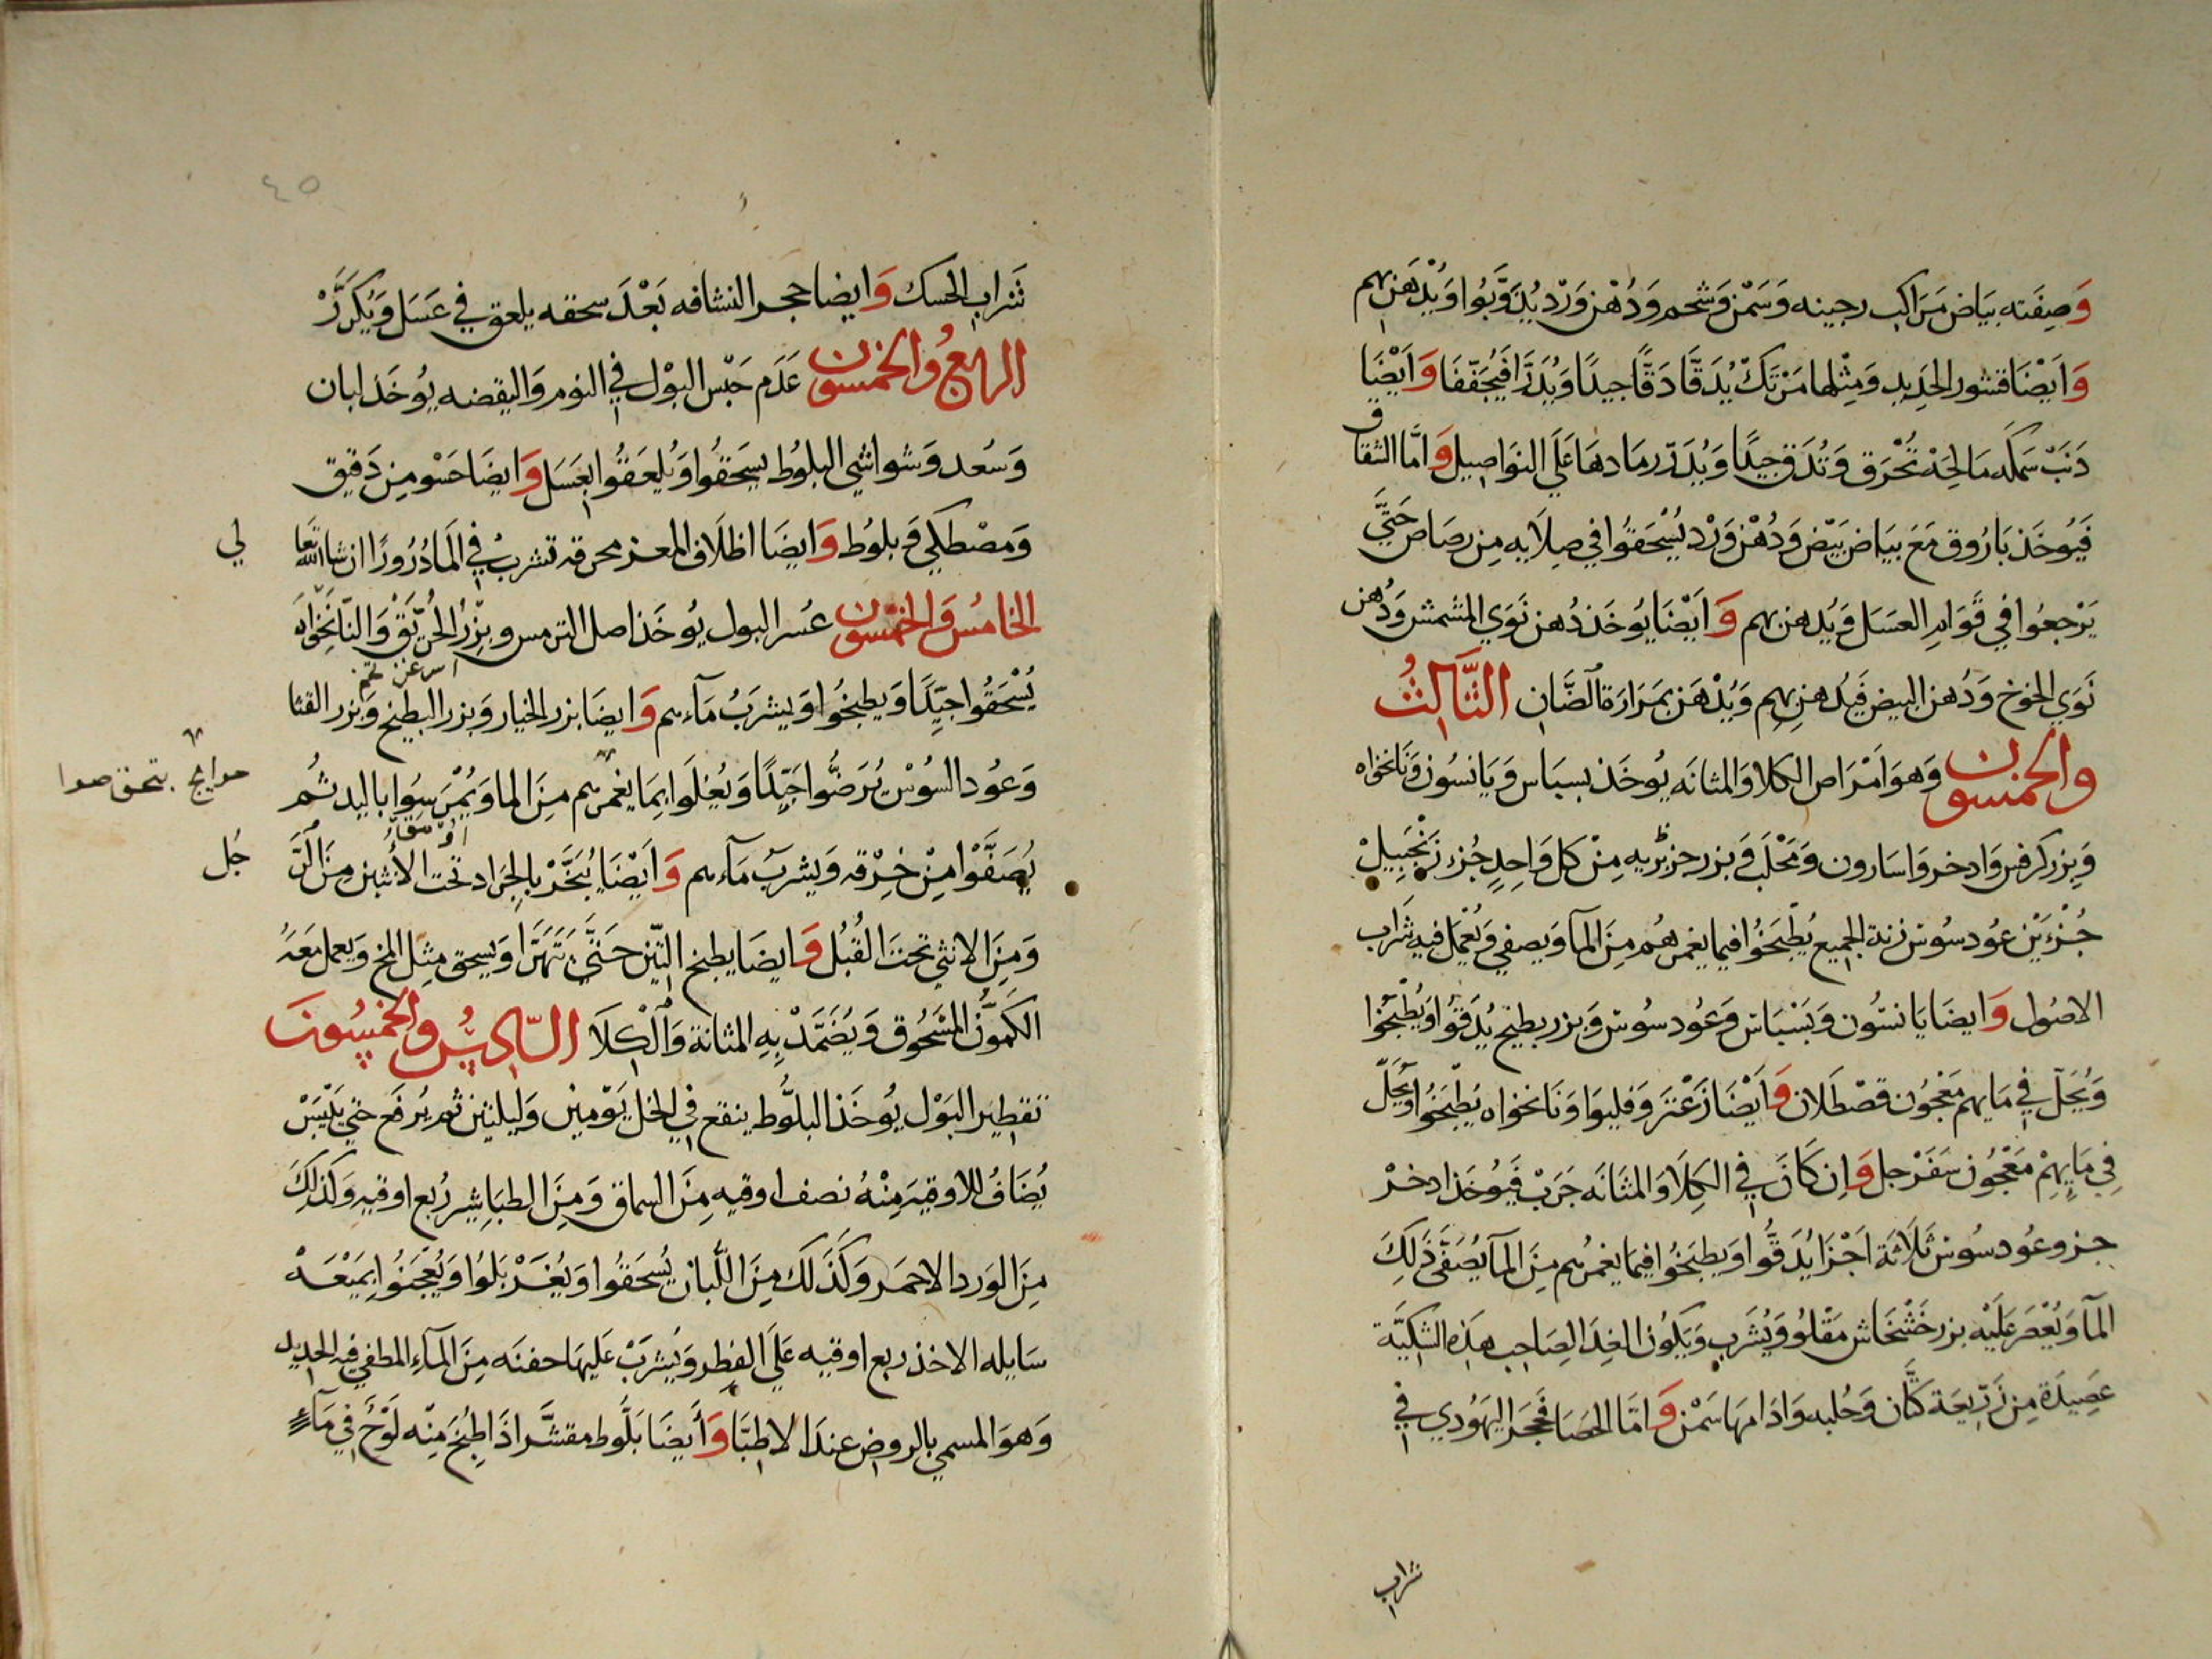 وَصِفَته بيَاض مَرَاكب رجينه وَسَمْن وَشحم وَدُهْن وَرْد يُدَوَّبُوا وَيُدْهَن بهم
وَاَيْضَا قشور الحَدِيد وَمِثْلها مَرْتَكْ يُدَقَّا دَقًّا جيدًا وَيُدَرَّا فَيُجَفّفَا وَاَيْضَا
دَنَبْ سَمَكه مَالِحَهْ تُحْرَق وَتُدَق جيدًا وَيُدَرّ رمَادهَا عَلَي النوَاصِيل وَامَّا الشقاق
فَيُوخَذ بَارُوق مَعَ بيَاض بَيْض وَدُهْن وَرْد يُسْحَقوُا في صِلَايه مِن رصَاص حَتَّي
يَرْجعُوا في قَوَام العَسَل وَيُدهن بهم وَاَيْضَا يُوخَذ دُهن نَوَي المشمش وَدُهن
نَوَي الخوخ وَدُهن البيض فَيُدهن بِهِم وَيُدْهَن بمَرَارَة الضَّان الثَّالِثُ
والخمسون وَهوَ اَمْرَاض الكلا وَالمثانَه يُوخَذ بسبَاس وَيَانسُون وَنَانخوَاه
وَبِزر كرفس وَادخر وَاسَارون وَمَحْلَب وَبزر جزبريه مِنْ كل وَاحِدٍ جُزء زَنْجَبِيلْ
جُزْءَيْن عوُد سوُس زنة الجميع يُطْبَخُوا فيما يغمرهُم مِنَ المآ وَيصفي وَيُعْمَل فيه شَرَاب
الاصُول وَايضَا يَانسُون وَبَسْبَاس وَعُود سوُس وَبزر بطيخ يُدَقوُا وَيُطبَخُوا
وَيُحَلّ في مَايهم مَعْجُون قصْطَلان وَاَيْضَا زَعْتَر وَفليوَا وَنَانخوَاه يُطْبَخُوا وَيُحَلّ
فِي مَايِهِمْ مَعْجُون سَفَرْجل وَاِن كَانَ في الكِلَا وَالمثَانَه جَرَبْ فَيُوخَذ ادخرْ
جزو وعُود سوُس ثَلَاثَة اَجْزَا يُدَقُّوا وَيطبَخُوا فيمَا يغمُرهم مِنَ المآ يُصَفّى ذَلِكَ
المآ وَيُعْصَر عَلَيْه بزر خَشْخَاش مَقْلوُ وَيُشرَب وَيَكوُن الغِدَا لِصَاحِب هَذِه الشكيَّة
عَصِيدَة مِن زَرّيعَة كَتَّان وَحُلبه وَادَامهَا سَمْن وَامّا الحَصَا فَحَجَر اليَهوُدي في
شراب
٤٥
شرَاب الحسك وَايضا حجر النشافه بَعْدَ سحقه يلعق في عَسَل وَيُكَرَّرْ
الرابعُ والخمسون عَدَم حَبْس البوْل في النوم وَاليقضه يُوخَذ لبان
وَسُعد وَشواشي البلوُط يسحَقوُا وَيُلعَقوُا بعَسَل وَايضَا حَسْو مِن دَقيق
وَمصْطكي وَبلوُط وَايضَا اظلَاف المعز محرقه تشربُ في المَا دُرُورًا ان شا الله تعا
لي
الخامسُ وَالخمسون عُسر البول يُوخَذ اصل الترمس وبِزْرُ الحُرّيَقْ وَالنّانَخْوَاهْ
يُسْحَقوُا جَيّدًا وَيطبخُوا وَيشرَبُ مَآءهم وَايضَا بزر الخيار وَبزر البطيخ وَبزر القثا
وَعوُد السوُس يُرَضُّوا جَيّدًا وَيُغلَوا بمَا يغمرهم مِنَ الما وَيُمْرَسوُا باليد ثمُ
يُصَفَّوْا مِنْ خِرْقه وَيشربُ مَآءهم وَاَيْضَا يُبَخَّرْ بالجَرَاد تحت الأنثيين مِنَ الرَّ
جُل
وَمِنَ الانثي تحتَ القُبُل وَايضَا يطبخ التّين حَتَّي يَتَهَرَّا وَيسحق مثل المخ وَيعمل مَعَهُ
الكَمُّون المَسْحُوق وَيُضَمَّدْ بِهِ المثانة وَالْكلَا السّادِسُ والخمسُونَ
تقطِير البَوْل يُوخَذ البلوُّط ينقع في الخل يَوْمين وَليلتين ثم يُرفع حتي يَيْبَسْ
يُضَافُ للاوقيَه مِنْهُ نصف اوقيه مِنَ السماق وَمِنَ الطبَاشِير رُبع اوقيه وَكذلكَ
مِنَ الوَرد الاحمَر وَكَذَلكَ مِنَ اللّبان يُسحَقوُا وَيُغَرْبَلوُا وَيُعْجَنُوا بمَيْعَهْ
سَايله الاخذ ربع اوقيه عَلَي الفطر وَيُشرَبْ عَليهَا حفنَه مِنَ المآء المطفي فيه الحديد
وَهوَ المسمي بالروض عندَ الاطبَّا وَأَيضًا بَلُّوط مقشَّر اذَا طُبخَ مِنْه لَوْحَ في مَآءٍ